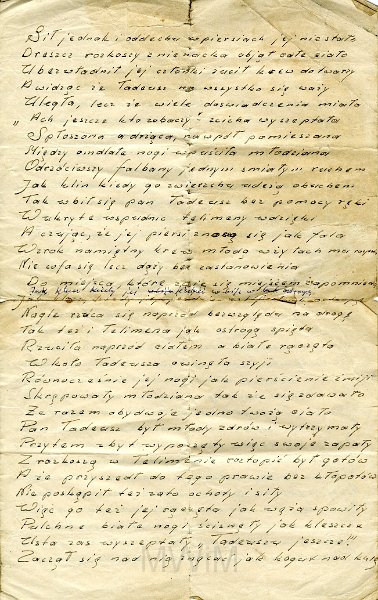 Sił jednak i oddechu w piersiach jej nie stało
Dreszcz rozkoszy znienacka objął całe ciało
Ubezwładnił jej członki rzucił krew do twarzy
A widząc że Tadeusz na wszystko się waży
Uległa, lecz że wiele doświadczenia miała
„Ach jeszcze kto zobaczy" z cicha wyszeptała
Spłoszona a drżąca, nawpół pomieszana
Między omdlałe nogi wpuściła młodziana
Odrzuciwszy falbany jednym śmiałym ruchem
Jak klin kiedy go z wierzchu uderzą obuchem
Tak wbił się pan Tadeusz bez pomocy ręki
W ukryte wspodnie Telimeny wdzięki
A czując, że jej pierś wznoszą się jak fala
Wzrok namiętny krew młodą w żyłach mu
Nie cofa się lecz dąży bez zastanowienia
Do miejsca które zwie się miejscem zapomnienia
Nagle rzuca się naprzód bezwzględu na drogę
Tak też i Telimena jak ostrogą spięta
Rzuciła naprzód ciałem a białe rączęta
Wkoło Tadeusza owinęła szyji
Równocześnie jej nogi jak pierścienie żmiji
Skrępowały młodziana tak że się zdawało
Że razem obydwoje jedno tworzą ciało
Pan Tadeusz był młody zdrów i wytrzymały
Przytem zbyt wyposzczony więc swoje zapały
Z rozkoszą w Telimenie roztopić był gotów
A że przyszedł do tego prawie bez kłopotów
Nie poskąpił też zato ochoty i siły
Więc go też jej rączęta jak węża spowiły
Pulchne białe nogi ścisnęły jak kleszcze
Usta zaś wyszeptały, Tadeuszu jeszcze!!!
Zaczął się nad nią znęcać jak kogut nad kurą
MVNIM